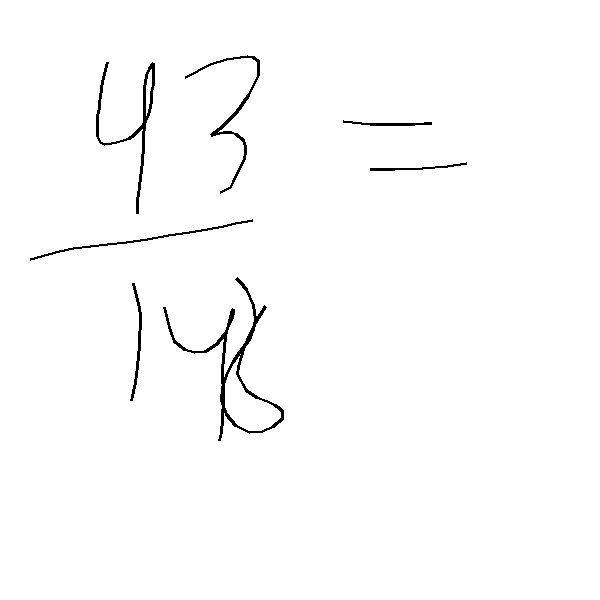 43 =
148